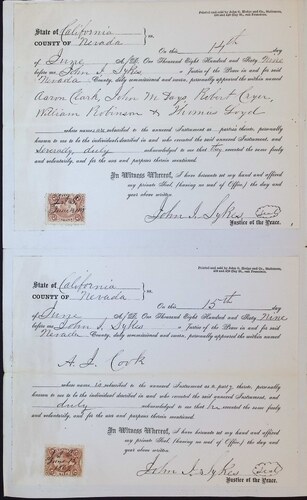 Printed and sold by John G. Hodge and Co., Stationers,
State of California
COUNTY OF Nevada } ss.
On this 14th
of June A.D. One Thousand Eight Hundred and Sixty Nine
before me John I. Sykes a Justice of the Peace in and for said
Nevada County, duly commissioned and sworn, personally appeared the within named
Aaron Clark, John M Days Robert Cryer,
William Robinson & Thomas Loyd
whose names are subscribed to the annexed Instrument as parties thereto, personally
known to me to be the individuals described in and who executed the said annexed Instrument, and
severally duly acknowledged to me that they executed the same freely
and voluntarily, and for the uses and purposes therein mentioned.
In Witness Whereof, I have hereunto set my hand and affixed
my private Seal (having no seal of Office,) the day and
year above written.
John I. Sykes Seal
Justice of the Peace.
Printed and sold by John G. Hodge and Co., Stationers,
State of California
COUNTY OF Nevada } ss.
On this 15th
of June A.D. One Thousand Eight Hundred and Sixty Nine
before me John I. Sykes a Justice of the Peace in and for said
Nevada County, duly commissioned and sworn, personally appeared the within named
A. J. Cook
whose name is subscribed to the annexed Instrument as a party thereto, personally
known to me to be the individual described in and who executed the said annexed Instrument, and
duly acknowledged to me that he executed the same freely
and voluntarily, and for the uses and purposes therein mentioned.
In Witness Whereof, I have hereunto set my hand and affixed
my private Seal (having no seal of Office,) the day and
year above written.
John I. Sykes Seal
Justice of the Peace.